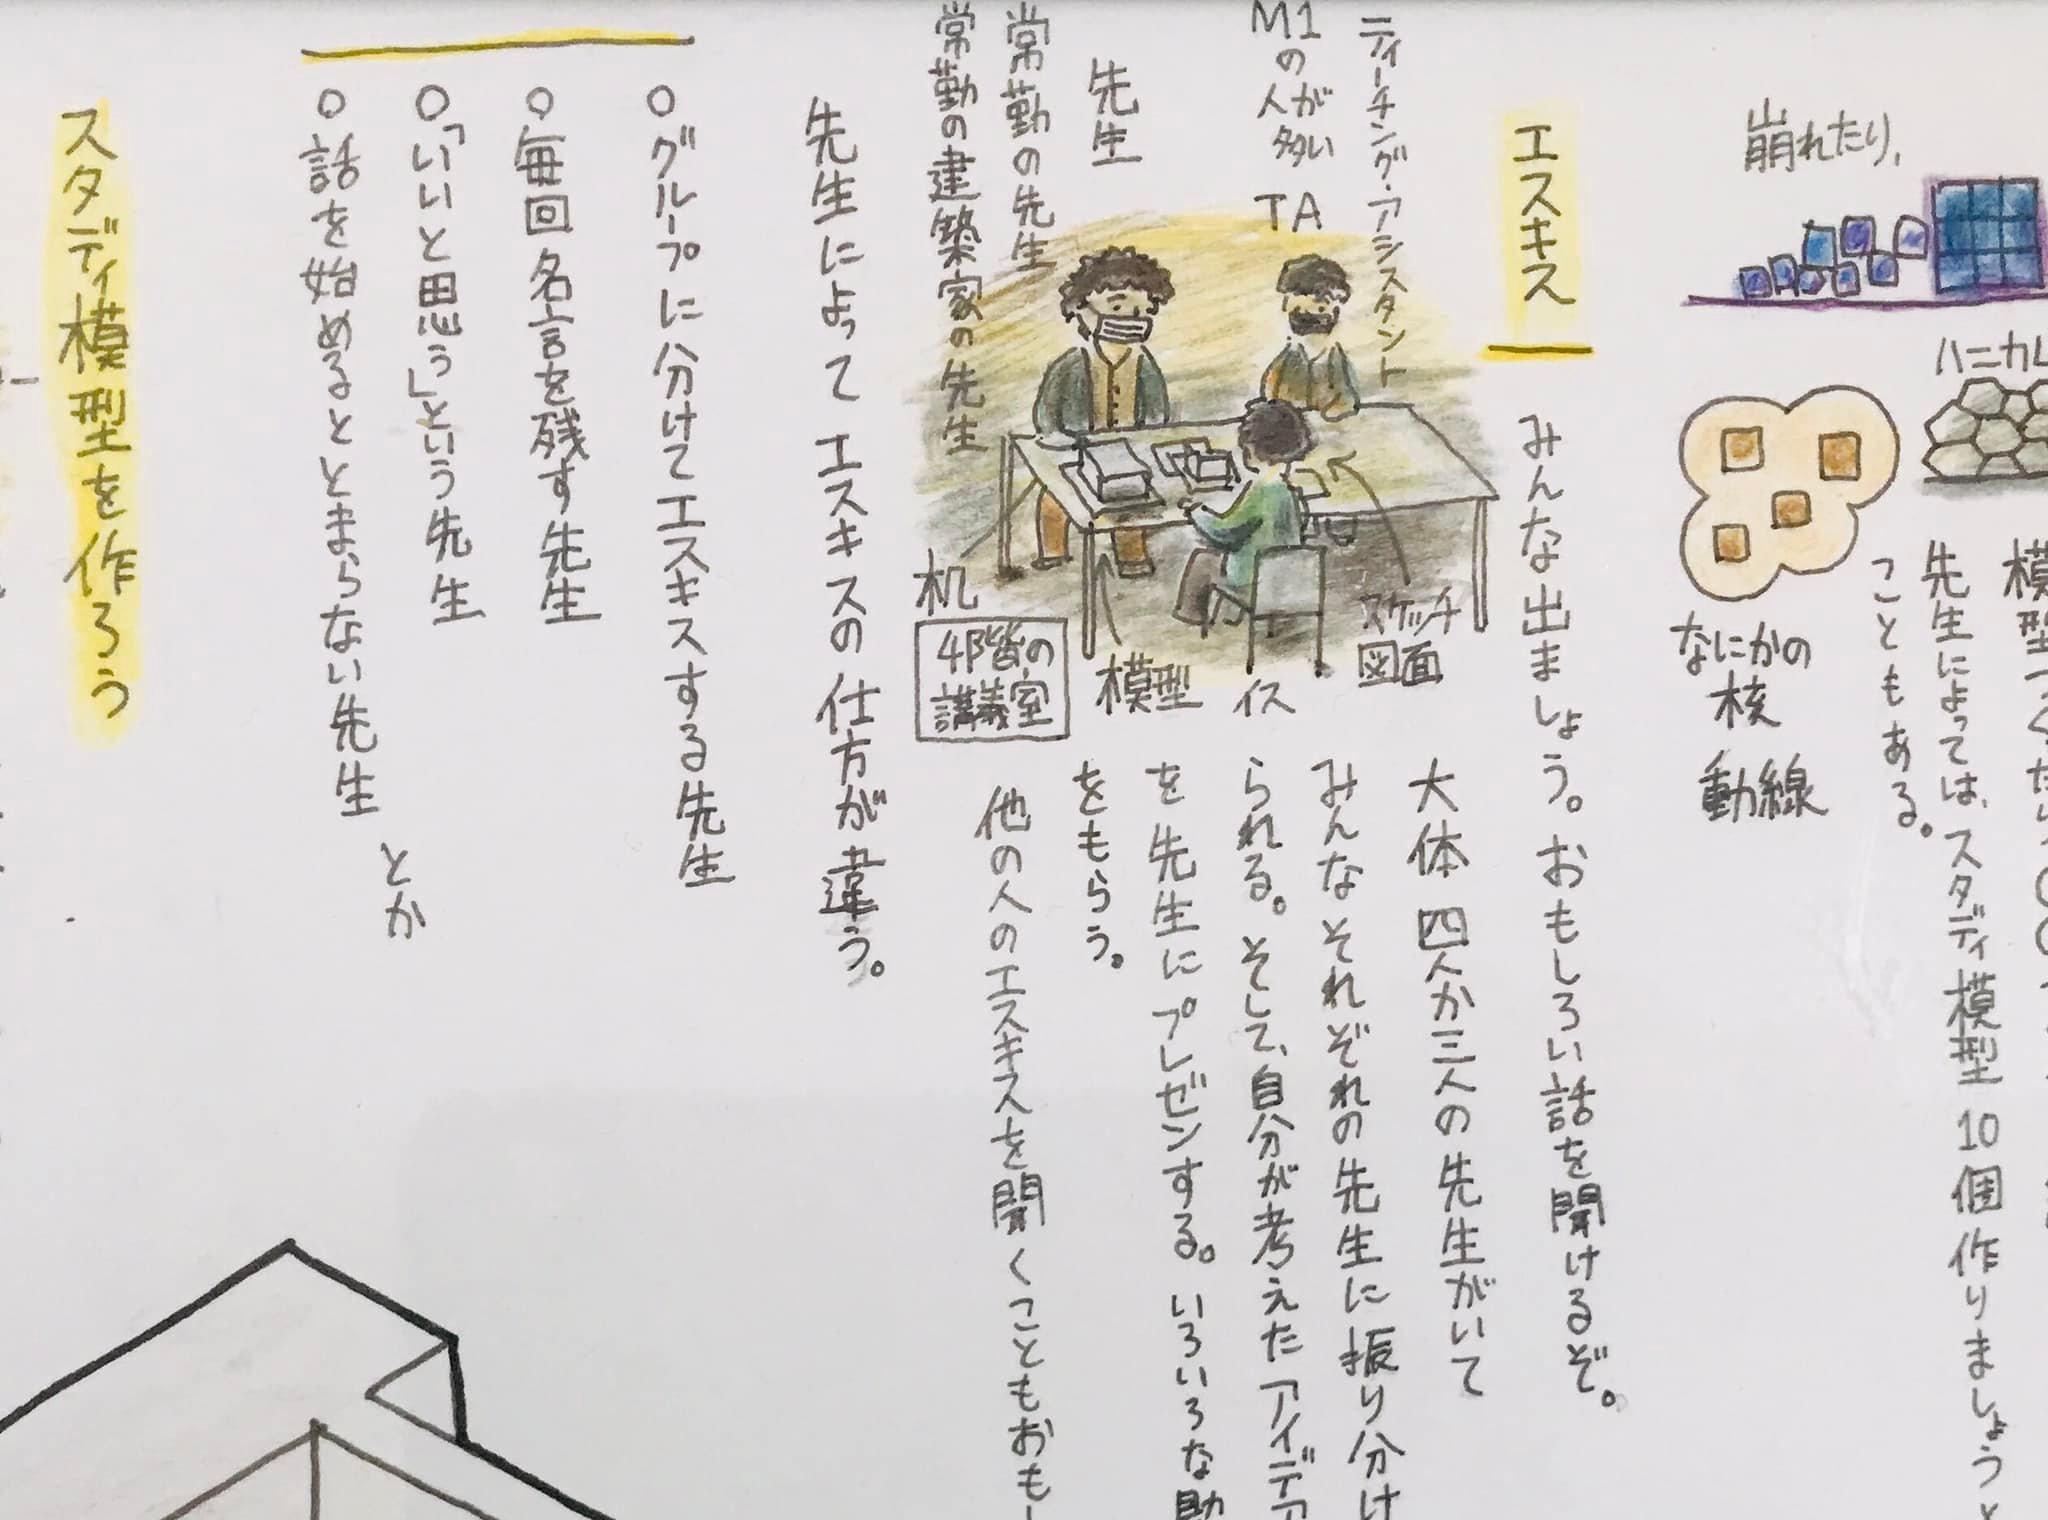 崩れたり、
ハニカム
なにかの
核
動線
先生によっては、スタディ模型10個作りましょうと
こともある。
エスキス
みんな出ましょう。おもしろい話を聞けるぞ。
大体四人か三人の先生がいて
みんなそれぞれの先生に振り分け
られる。そして、自分が考えたアイデア
を先生にプレゼンする。いろいろな助
をもらう。
他の人のエスキスを聞くこともおも
ティーチング・アシスタント
M1の人が多い
TA
先生
常勤の先生
常勤の建築家の先生
机
4階の
講義室
模型
イス
スケッチ
図面
先生によってエスキスの仕方が違う。
○グループに分けてエスキスする先生
○毎回名言を残す先生
○「いいと思う」という先生
○話を始めるととまらない先生
とか
スタディ模型を作ろう